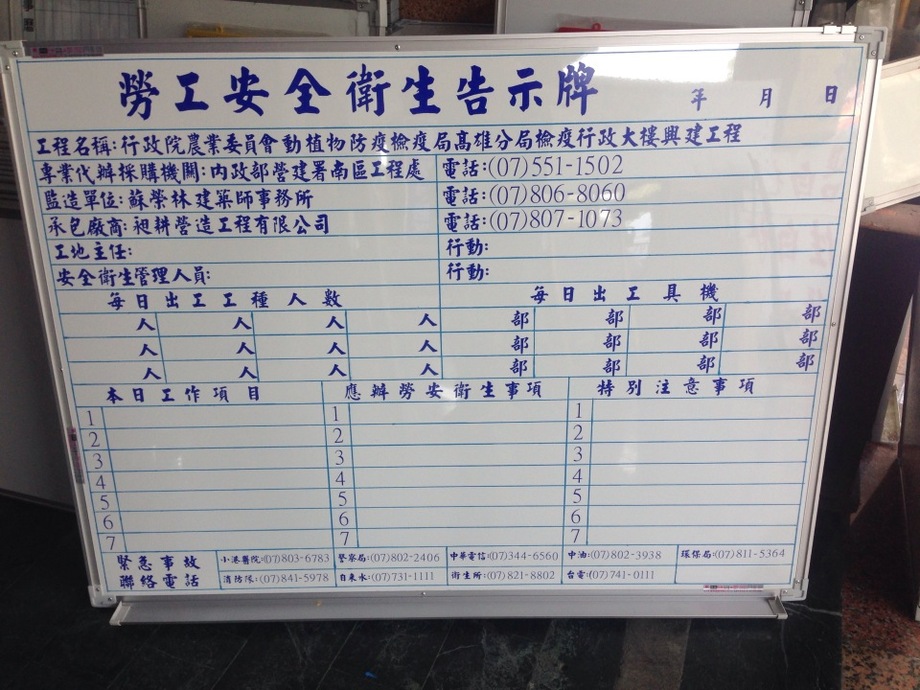 勞工安全衛生告示牌 年 月 日
工程名稱:行政院農業委員會動植物防疫檢疫局高雄分局檢疫行政大樓興建工程
專業代辦採購機關:內政部營建署南區工程處 電話:(07)551-1502
監造單位:蘇榮林建築師事務所 電話:(07)806-8060
承包廠商:昶耕營造工程有限公司 電話:(07)807-1073
工地主任: 行動:
安全衛生管理人員: 行動:
每日出工工種人數 每日出工具機
人 人 人 人 部 部 部 部
人 人 人 人 部 部 部 部
人 人 人 人 部 部 部 部
本日工作項目 應辦勞安衛生事項 特別注意事項
1 1 1
2 2 2
3 3 3
4 4 4
5 5 5
6 6 6
7 7 7
緊急事故 小港醫院:(07)803-6783 警察局:(07)802-2406 中華電信:(07)344-6560 中油:(07)802-3938 環保局:(07)811-5364
聯絡電話 消防隊:(07)841-5978 自來水:(07)731-1111 衛生所:(07)821-8802 台電:(07)741-0111